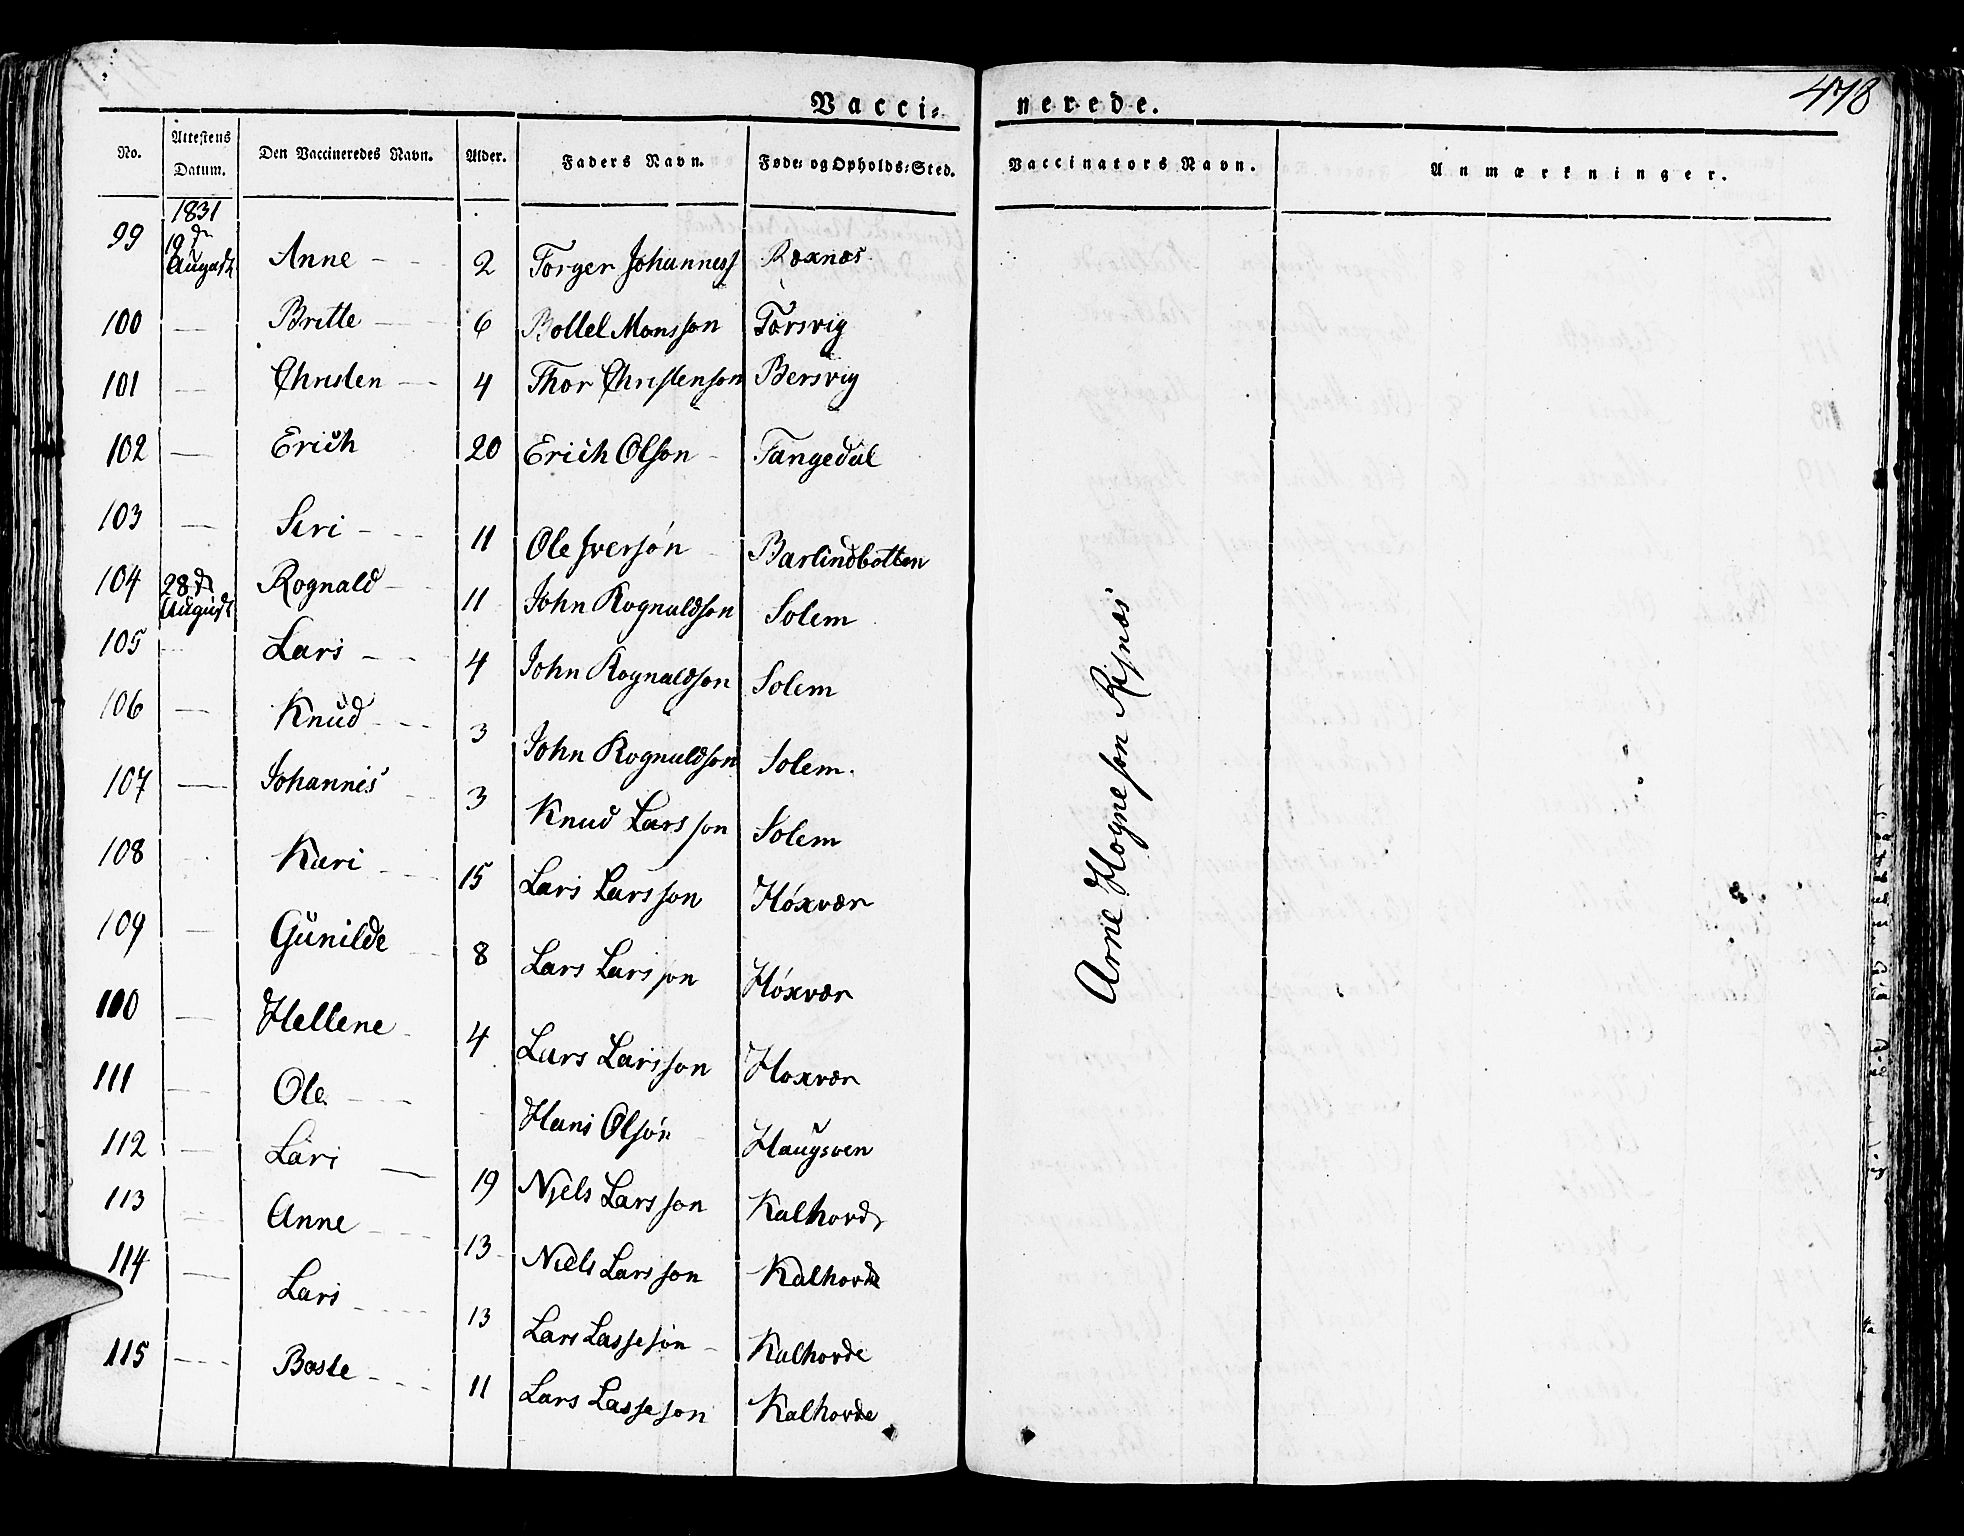 478
Vacci- nerede.
No. Attestens Datum. Den Vaccineredes Navn. Alder. Faders Navn. Føde- og Opholds-Sted. Vaccinators Navn. Anmærkninger.
1831
99 19 d August Anne - - 2 Torger Johanness Røxnæs
100 — Britte - - 6 Bottel Monsson Torsvig
101 — Christen - - 4 Thor Christenson Bersvig
102 — Erich 20 Erich Olson - Tangedal
103 — Seri - - - 11 Ole Iversøn Barlindbotten
104 28 d August Rognald - 11 John Rognaldson Solem
105 - - - Lars - - 4 John Rognaldson Solem
106 — Knud - - - 3 John Rognaldson Solem.
107 — Johannes - - 3 Knud Larsson Solem
108 Kari - - - 15 Lars Larsson Høxvær
109 — Gunilde - - 8 Lars Larsson Høxvær
110 — Hellene - 4 Lars Larsson Hoxvær
111 — Ole - - - - Hans Olsøn Haugsven
112 — Lari — 19 Niels Larsson Kalhorde
113 — Anne - - - 13 Niels Larsson Kalhorde
114 — Lars - - - - 13 Lars Lassesøn - Kalhorde
115 - - - Baste - - - 11 Lars Lasseson Kalhorde
Arne Hogneson Risnæs